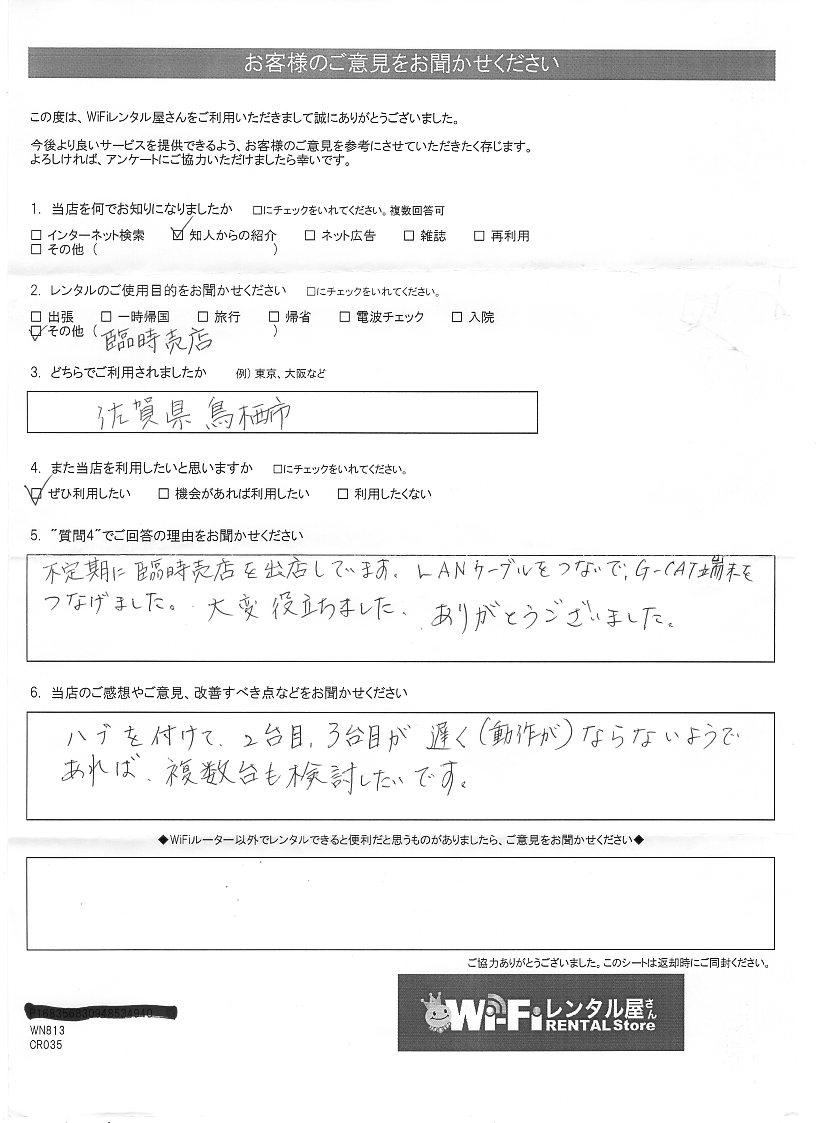 お客様のご意見をお聞かせください
この度は、WiFiレンタル屋さんをご利用いただきまして誠にありがとうございました。
今後より良いサービスを提供できるよう、お客様のご意見を参考にさせていただきたく存じます。
よろしければ、アンケートにご協力いただけましたら幸いです。
1. 当店を何でお知りになりましたか □にチェックをいれてください。複数回答可
□ インターネット検索 ☑ 知人からの紹介 □ ネット広告 □ 雑誌 □ 再利用
□ その他 ( )
2. レンタルのご使用目的をお聞かせください □にチェックをいれてください。
□ 出張 □ 一時帰国 □ 旅行 □ 帰省 □ 電波チェック □ 入院
☑ その他 (臨時売店 )
3. どちらでご利用されましたか 例) 東京、大阪など
佐賀県鳥栖市
4. また当店を利用したいと思いますか □にチェックをいれてください。
☑ ぜひ利用したい □ 機会があれば利用したい □ 利用したくない
5. "質問4"でご回答の理由をお聞かせください
不定期に臨時売店を出店しています。LANケーブルをつないで、G-CAT端末を
つなげました。大変役立ちました、ありがとうございました。
6. 当店のご感想やご意見、改善すべき点などをお聞かせください
ハブを付けて、2台目、3台目が遅く(動作が)ならないようで
あれば、複数台も検討したいです。
◆WiFiルーター以外でレンタルできると便利だと思うものがありましたら、ご意見をお聞かせください◆
ご協力ありがとうございました。このシートは返却時にご同封ください。
WN813
CR035
Wi-Fiレンタル屋さん
RENTAL Store